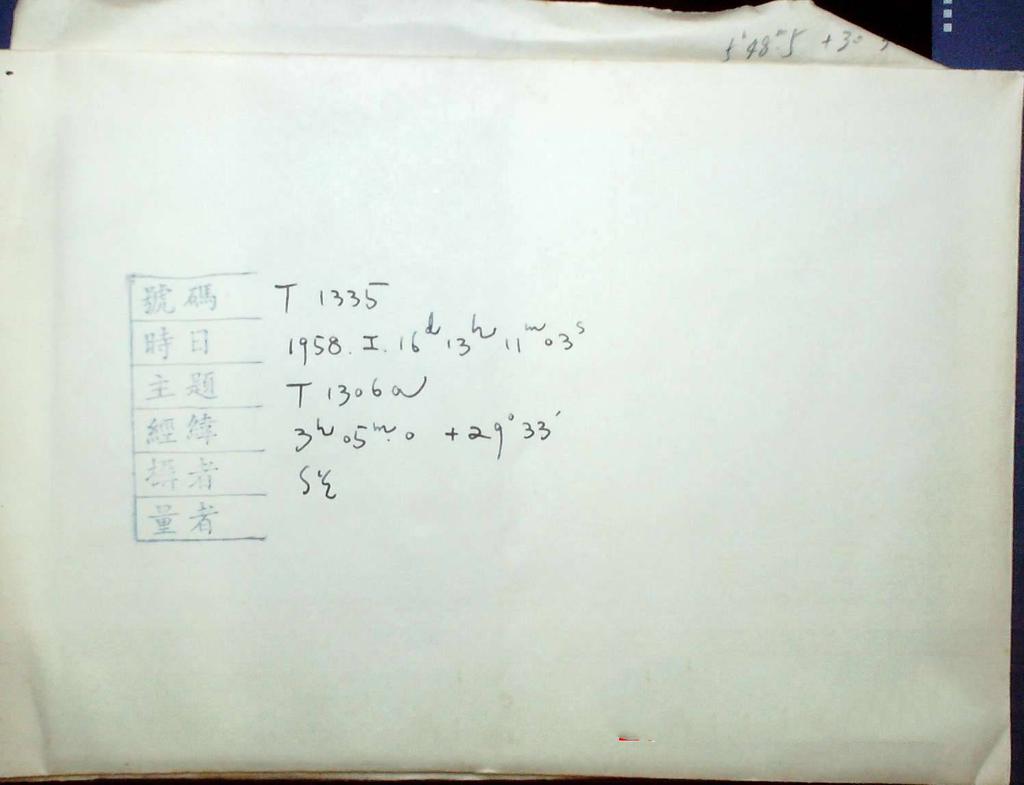 5ʰ48ᵐ.5 +30
號碼 T 1335
時日 1958. I. 16ᵈ 13ʰ 11ᵐ 03ˢ
主題 T 1306a
經緯 3ʰ 05ᵐ.0 +29°33′
攝者
量者